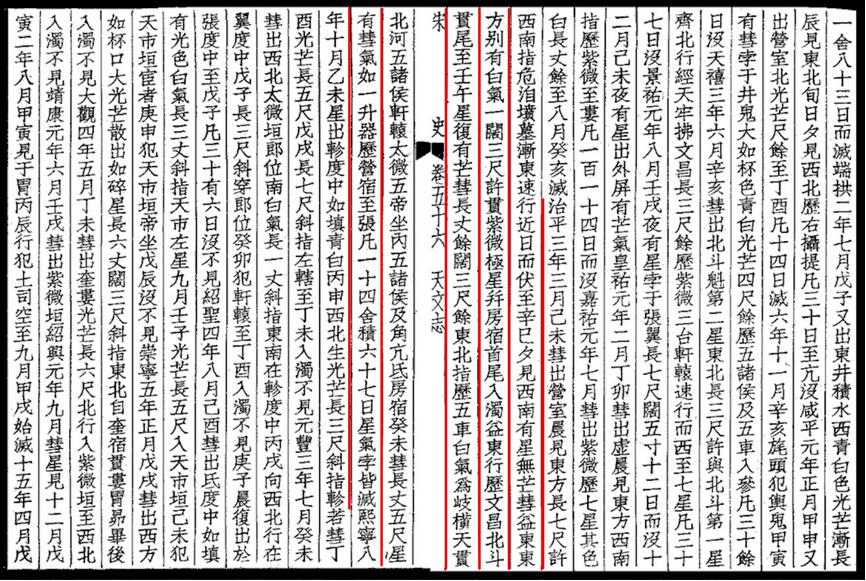 一舍八十三日而滅端拱二年七月戊子又出東井積水西青白色光芒漸長
辰見東北旬日夕見西北歷右攝提凡三十日至亢沒咸平元年正月甲申又
出營室北光芒尺餘至丁酉凡十四日滅六年十一月辛亥旄頭犯輿鬼甲寅
有彗孛于井鬼大如杯色青白光芒四尺餘歷五諸侯及五車入參凡三十餘
日沒天禧三年六月辛亥彗出北斗魁第二星東北長三尺許與北斗第一星
齊北行經天牢拂文昌長三尺餘歷紫微三台軒轅速行而西至七星凡三十
七日沒景祐元年八月壬戌夜有星孛于張翼長七尺闊五寸十二日而沒十
二月己未夜有星出外屏有芒氣皇祐元年二月丁卯彗出虛晨見東方西南
指歷紫微至婁凡一百一十四日而沒嘉祐元年七月彗出紫微歷七星其色
白長丈餘至八月癸亥滅治平三年三月己未彗出營室晨見東方長七尺許
西南指危洎墳墓漸東速行近日而伏至辛巳夕見西南有星無芒彗益東東
方別有白氣一闊三尺許貫紫微極星幷房宿首尾入濁益東行歷文昌北斗
貫尾至壬午星復有芒彗長丈餘闊三尺餘東北指歷五車白氣爲岐橫天貫
宋史 卷五十六 天文志
北河五諸侯軒轅太微五帝坐內五諸侯及角亢氐房宿癸未彗長丈五尺星
有彗氣如一升器歷營宿至張凡一十四舍積六十七日星氣孛皆滅熙寧八
年十月乙未星出軫度中如填青白丙申西北生光芒長三尺斜指軫若彗丁
酉光芒長五尺戊戌長七尺斜指左轄至丁未入濁不見元豐三年七月癸未
彗出西北太微垣郎位南白氣長一丈斜指東南在軫度中丙戌向西北行在
翼度中戊子長三尺斜穿郎位癸卯犯軒轅至丁酉入濁不見庚子晨復出於
張度中至戊子凡三十有六日沒不見紹聖四年八月己酉彗出氐度中如填
有光色白氣長三丈斜指天市左星九月壬子光芒長五尺入天市垣己未犯
天市垣宦者庚申犯天市垣帝坐戊辰沒不見崇寧五年正月戊戌彗出西方
如杯口大光芒散出如碎星長六丈闊三尺斜指東北自奎宿貫婁胃昴畢後
入濁不見大觀四年五月丁未彗出奎婁光芒長六尺北行入紫微垣至西北
入濁不見靖康元年六月壬戌彗出紫微垣紹興元年九月彗星見十二月戊
寅二年八月甲寅見于胃丙辰行犯土司空至九月甲戌始滅十五年四月戊